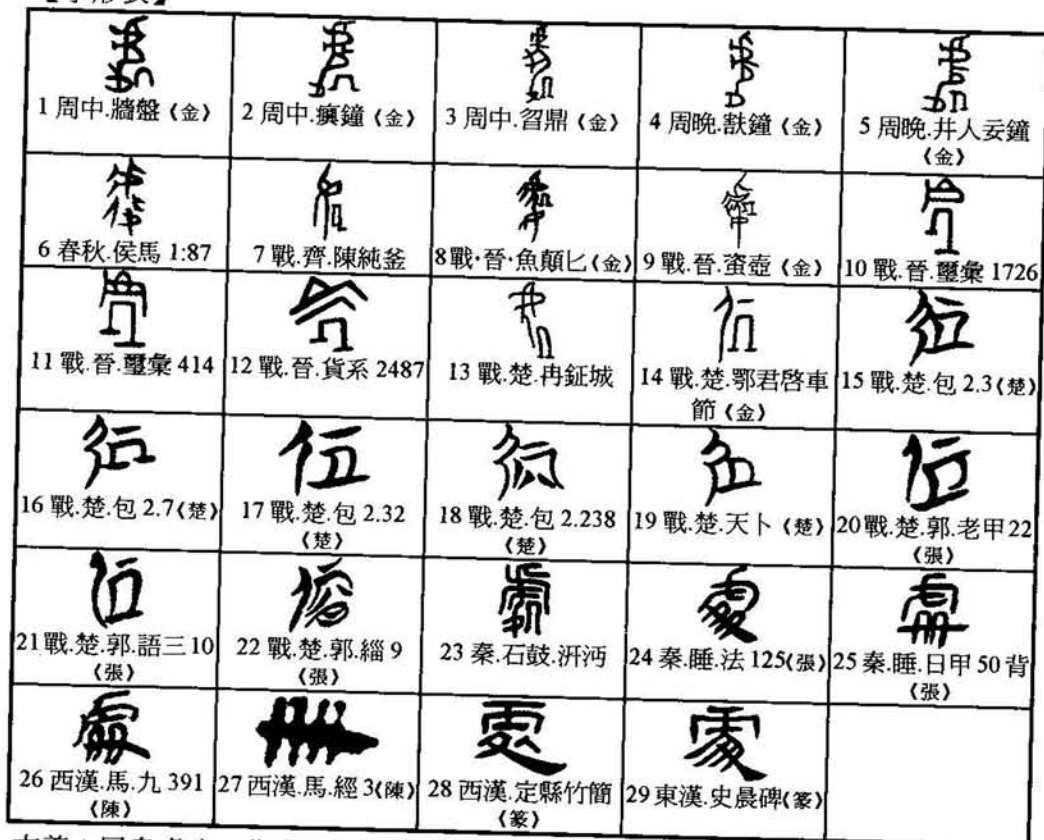 1 周中.牆盤《金》
2 周中.㾓鐘《金》
3 周中.曶鼎《金》
4 周晚.㝬鐘《金》
5 周晚.井人妄鐘
《金》
6 春秋.侯馬 1:87
7 戰.齊.陳純釜
8戰·晉·魚顛匕《金》
9 戰.晉.𧊒壺《金》
10 戰.晉.璽彙 1726
11 戰.晉.璽彙 414
12 戰.晉.貨系 2487
13 戰.楚.冉鉦城
14 戰.楚.鄂君啓車
節《金》
15 戰.楚.包 2.3《楚》
16 戰.楚.包 2.7《楚》
17 戰.楚.包 2.32
《楚》
18 戰.楚.包 2.238
《楚》
19 戰.楚.天卜《楚》
20戰.楚.郭.老甲22
《張》
21戰.楚.郭.語三10
《張》
22 戰.楚.郭.緇 9
《張》
23 秦.石鼓.汧沔
24 秦.睡.法 125《張》
25 秦.睡.日甲 50 背
《張》
26 西漢.馬.九 391
《陳》
27 西漢.馬.經 3《陳》
28 西漢.定縣竹簡
《篆》
29 東漢.史晨碑《篆》